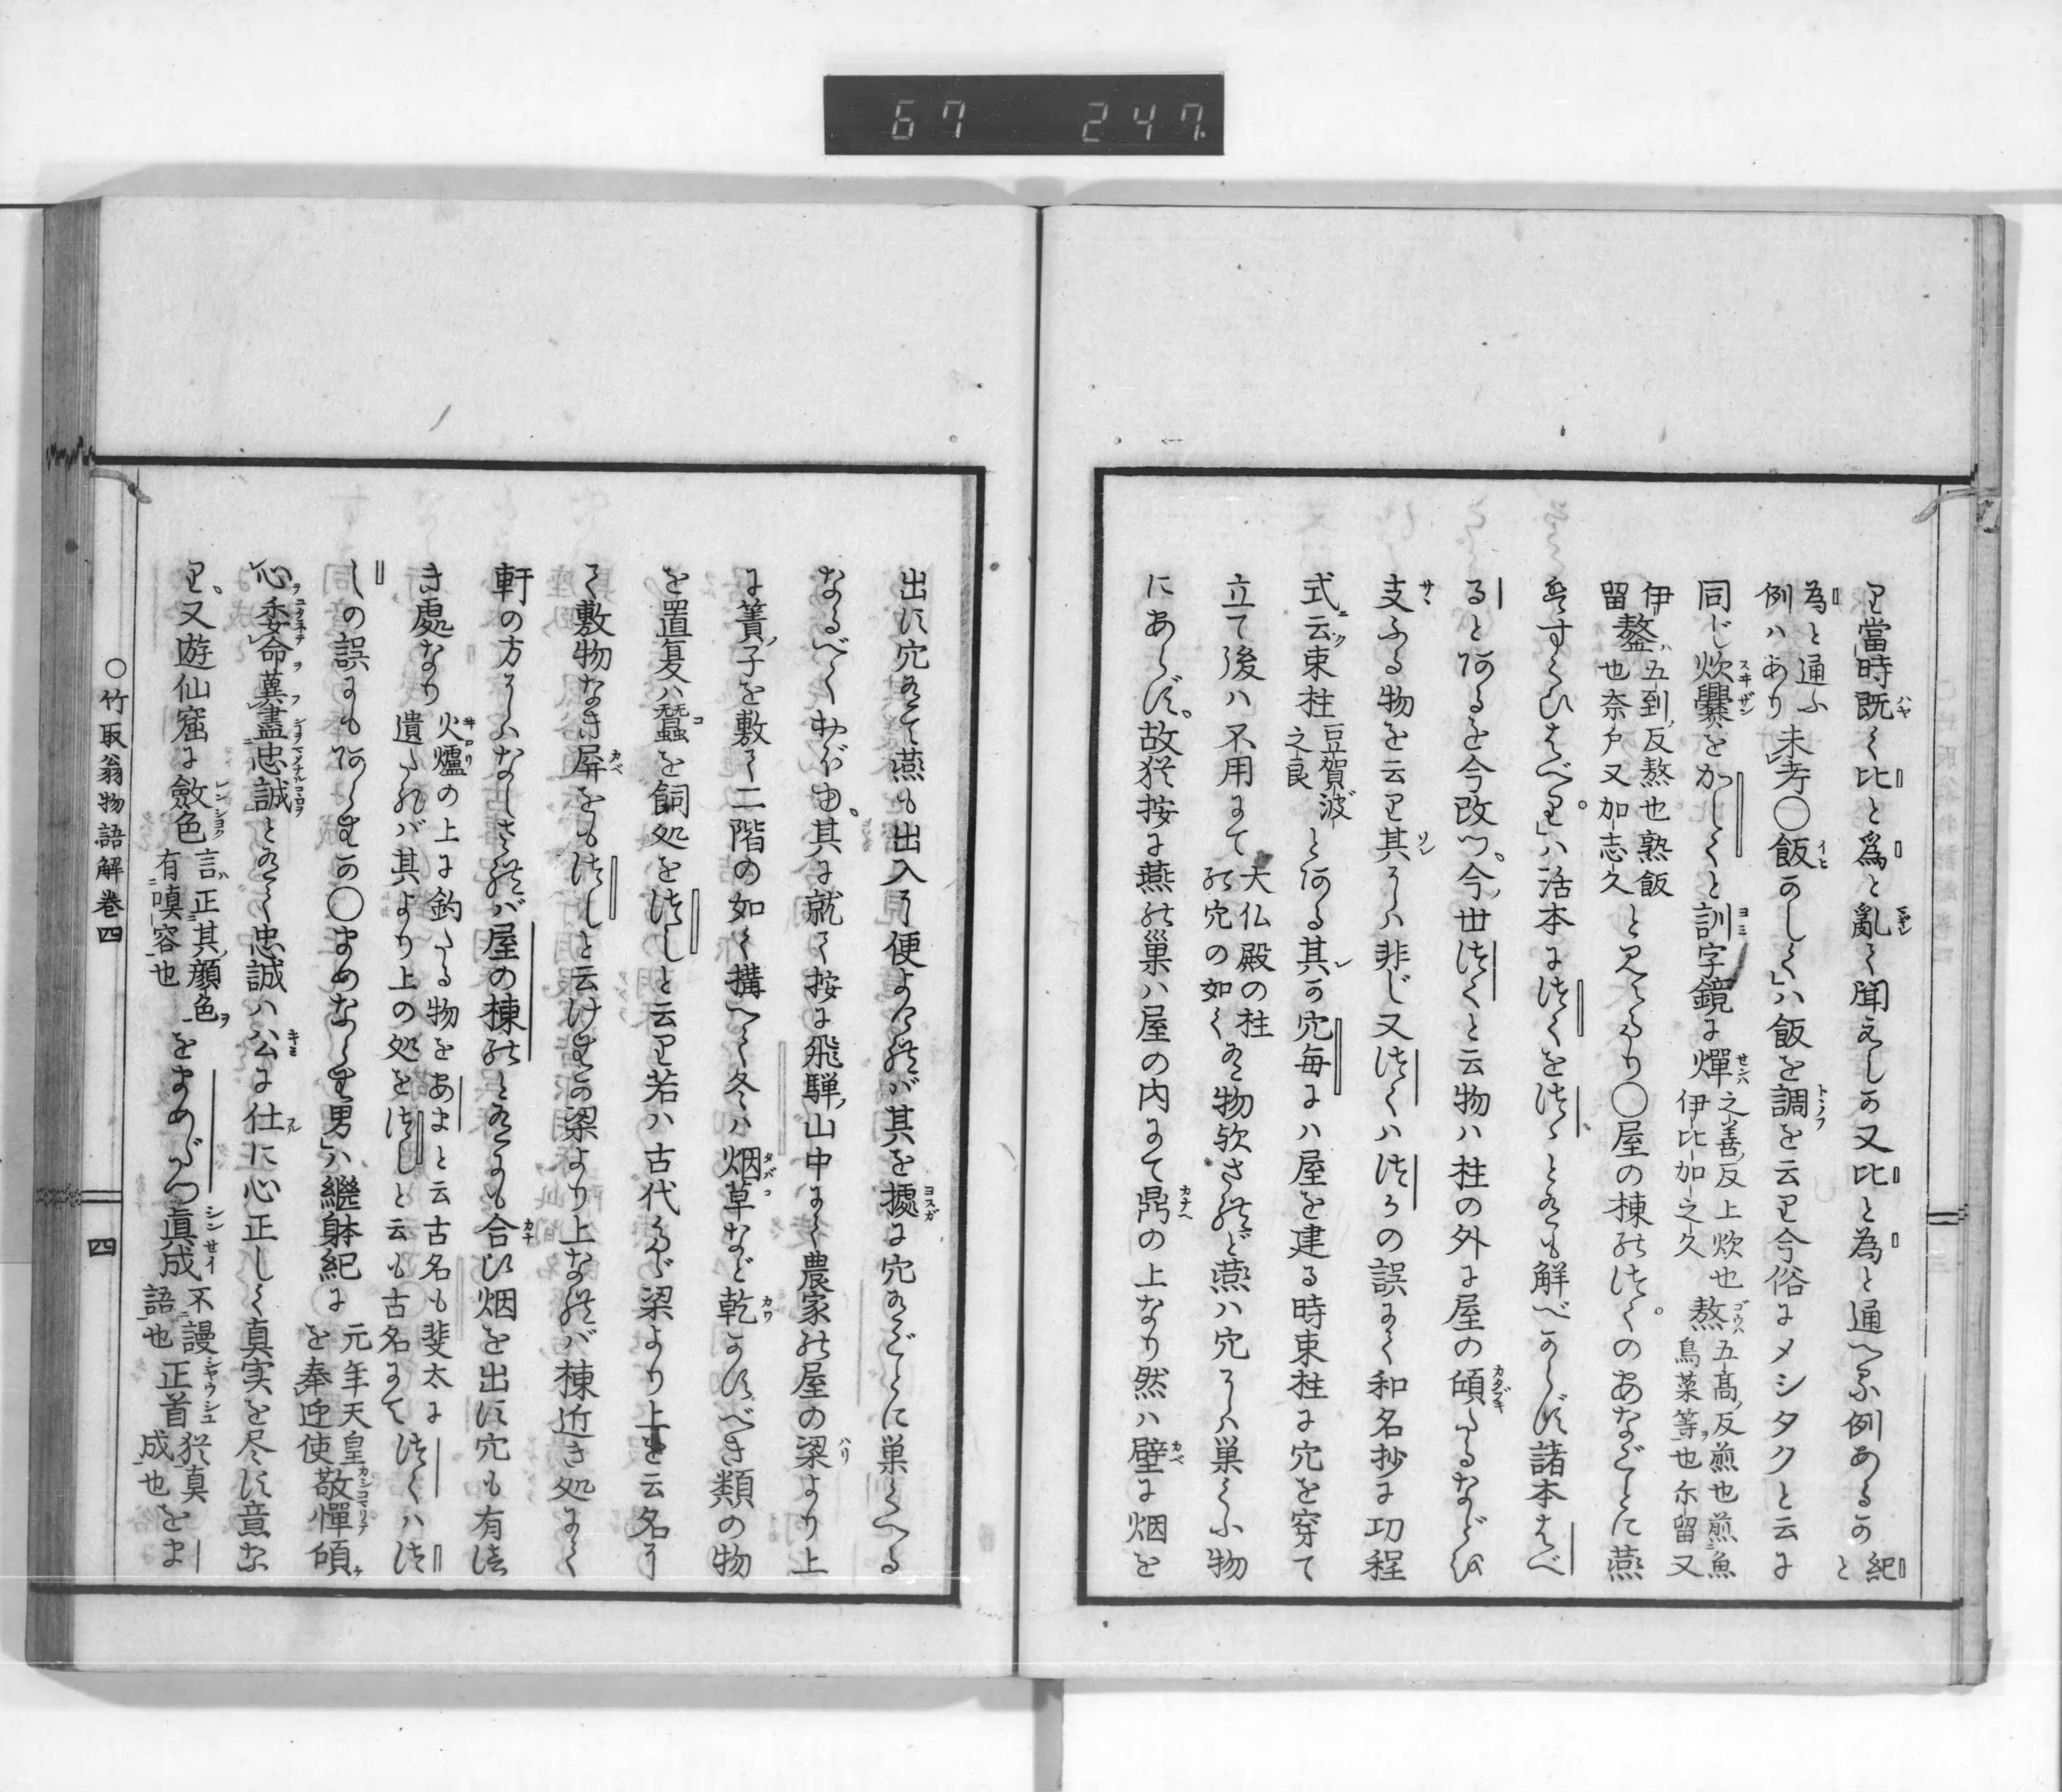 67 247
り當時既く比と爲と亂て聞えしか又比と為と通へる例あるか紀と
為と通ふ例ハあり未考○飯かしくハ飯を調を云り今俗にメシタクと云に
同じ炊爨をかしくと訓字鏡に燀之善反上炊也伊比加之久熬五高反煎也煎魚鳥菜等也尓留又
伊留鏊五到反熬也熟飯也奈戸又加志久と見えたり○屋の棟のつくのあなごとに燕
ハ活本につくを
ると有るを今改つ今世つくと云物ハ柱の外に屋の傾たるなどを
支ふる物を云り其にハ非じ又つくハつかの誤にて和名抄に功程
式云束柱豆賀波之良と有る其の穴毎にハ屋を建る時束柱に穴を穿て
立て後ハ不用にて大仏殿の柱の穴の如くなる物欤されど燕ハ穴にハ巣くふ物
にあらず故猶按に燕の巣ハ屋の内にて鼎の上なり然ハ壁に烟を
出す穴有て燕も出入に便よければ其を據に穴ごとに巣くへる
なるべくおぼゆ其に就て按に飛騨山中にて農家の屋の梁より上
に簀子を敷て二階の如く搆へて冬ハ烟草など乾かすべき類の物
を置夏ハ蠶を飼処をつしと云り若ハ古代梁より上を云名に
て敷物なき屏をもつしと云けむか梁より上なれば棟近き処にて
軒の方にハなしされば屋の棟のと有にも合ひ烟を出す穴も有つ
き處なり火爐の上に釣たる物をあまと云古名も斐太に遺れれば其より上の処をつしと云も古名にてつくハつ
しの誤にも有らむか○まめなる男ハ繼躰紀に元年天皇を奉迎使敬憚傾
心委命冀盡忠誠と有て忠誠ハ公に仕に心正しく真実を尽す意な
り又遊仙窟に斂色言正其顔色有嗔容也をまめだつ眞成不謾語也正首猶真成也をま
○竹取翁物語解卷四
四